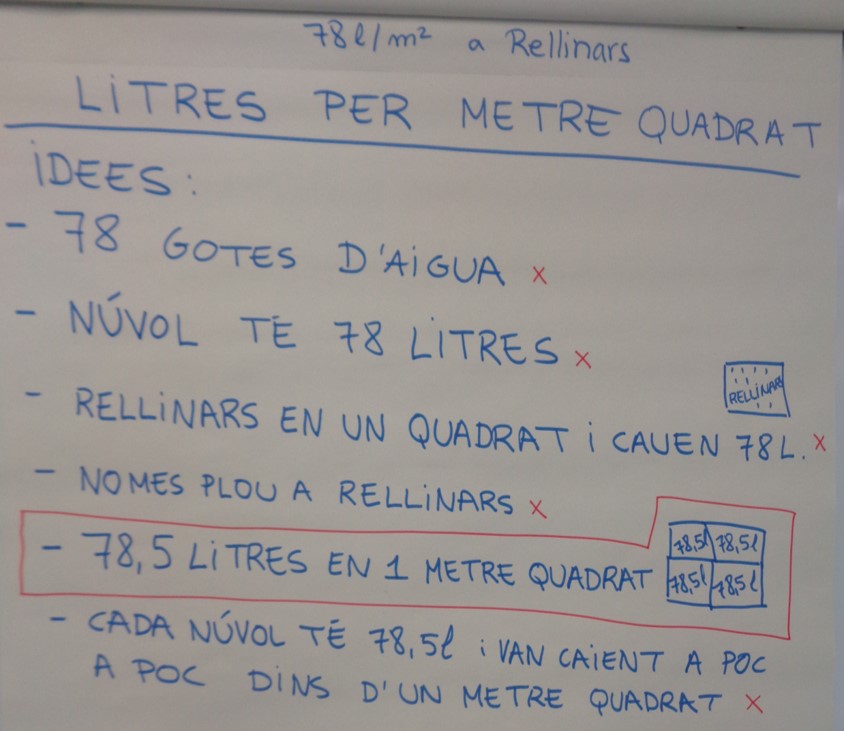 78l/m² a Rellinars
LiTRES PER METRE QUADRAT
iDEES:
- 78 GOTES D'AiGUA x
- NÚVOL TÉ 78 LiTRES x
RELLiNARS
- RELLiNARS EN UN QUADRAT i CAUEN 78L. x
- NOMES PLOU A RELLiNARS x
78,5l 78,5l
- 78,5 LiTRES EN 1 METRE QUADRAT
78,5l 78,5l
- CADA NÚVOL TÉ 78,5l i VAN CAiENT A POC
A POC DiNS D'UN METRE QUADRAT x